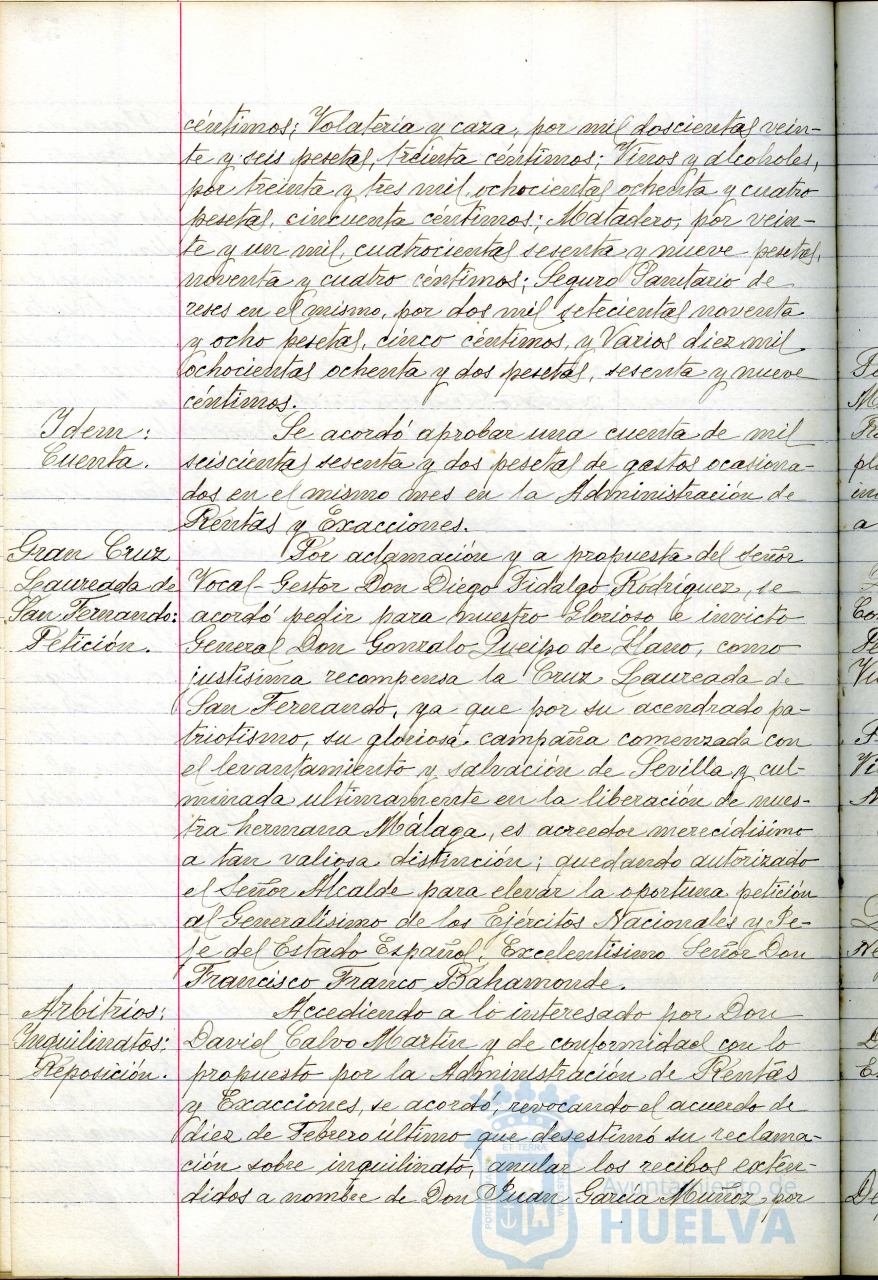 céntimos; Volatería y caza, por mil doscientas vein-
te y seis pesetas, treinta céntimos; Vinos y alcoholes,
por treinta y tres mil ochocientas ochenta y cuatro
pesetas, cincuenta céntimos; Matadero, por vein-
te y un mil, cuatrocientas sesenta y nueve pesetas,
noventa y cuatro céntimos; Seguro Sanitario de
reses en el mismo, por dos mil setecientas noventa
y ocho pesetas, cinco céntimos, y Varios diez mil
ochocientas ochenta y dos pesetas, sesenta y nueve
céntimos.
Idem:
Cuenta.
Se acordó aprobar una cuenta de mil
seiscientas sesenta y dos pesetas de gastos ocasiona-
dos en el mismo mes en la Administración de
Rentas y Exacciones.
Gran Cruz
Laureada de
San Fernando:
Petición.
Por aclamación y a propuesta del señor
Vocal-Gestor Don Diego Fidalgo Rodríguez, se
acordó pedir para nuestro Glorioso e invicto
General Don Gonzalo Queipo de Llano, como
justísima recompensa la Cruz Laureada de
San Fernando, ya que por su acendrado pa-
triotismo, su gloriosa campaña comenzada con
el levantamiento y salvación de Sevilla y cul-
minada ultimamente en la liberación de nues-
tra hermana Málaga, es acreedor merecidísimo
a tan valiosa distinción; quedando autorizado
el Señor Alcalde para elevar la oportuna petición
al Generalísimo de los Ejércitos Nacionales y Je-
fe del Estado Español, Excelentísimo Señor Don
Francisco Franco Bahamonde.
Arbitrios:
Inquilinatos:
Reposición.
Accediendo a lo interesado por Don
David Calvo Martín y de conformidad con lo
propuesto por la Administración de Rentas
y Exacciones, se acordó, revocando el acuerdo de
diez de Febrero último que desestimó su reclama-
ción sobre inquilinato, anular los recibos exten-
didos a nombre de Don Juan García Muñoz por
Ayuntamiento de
HUELVA